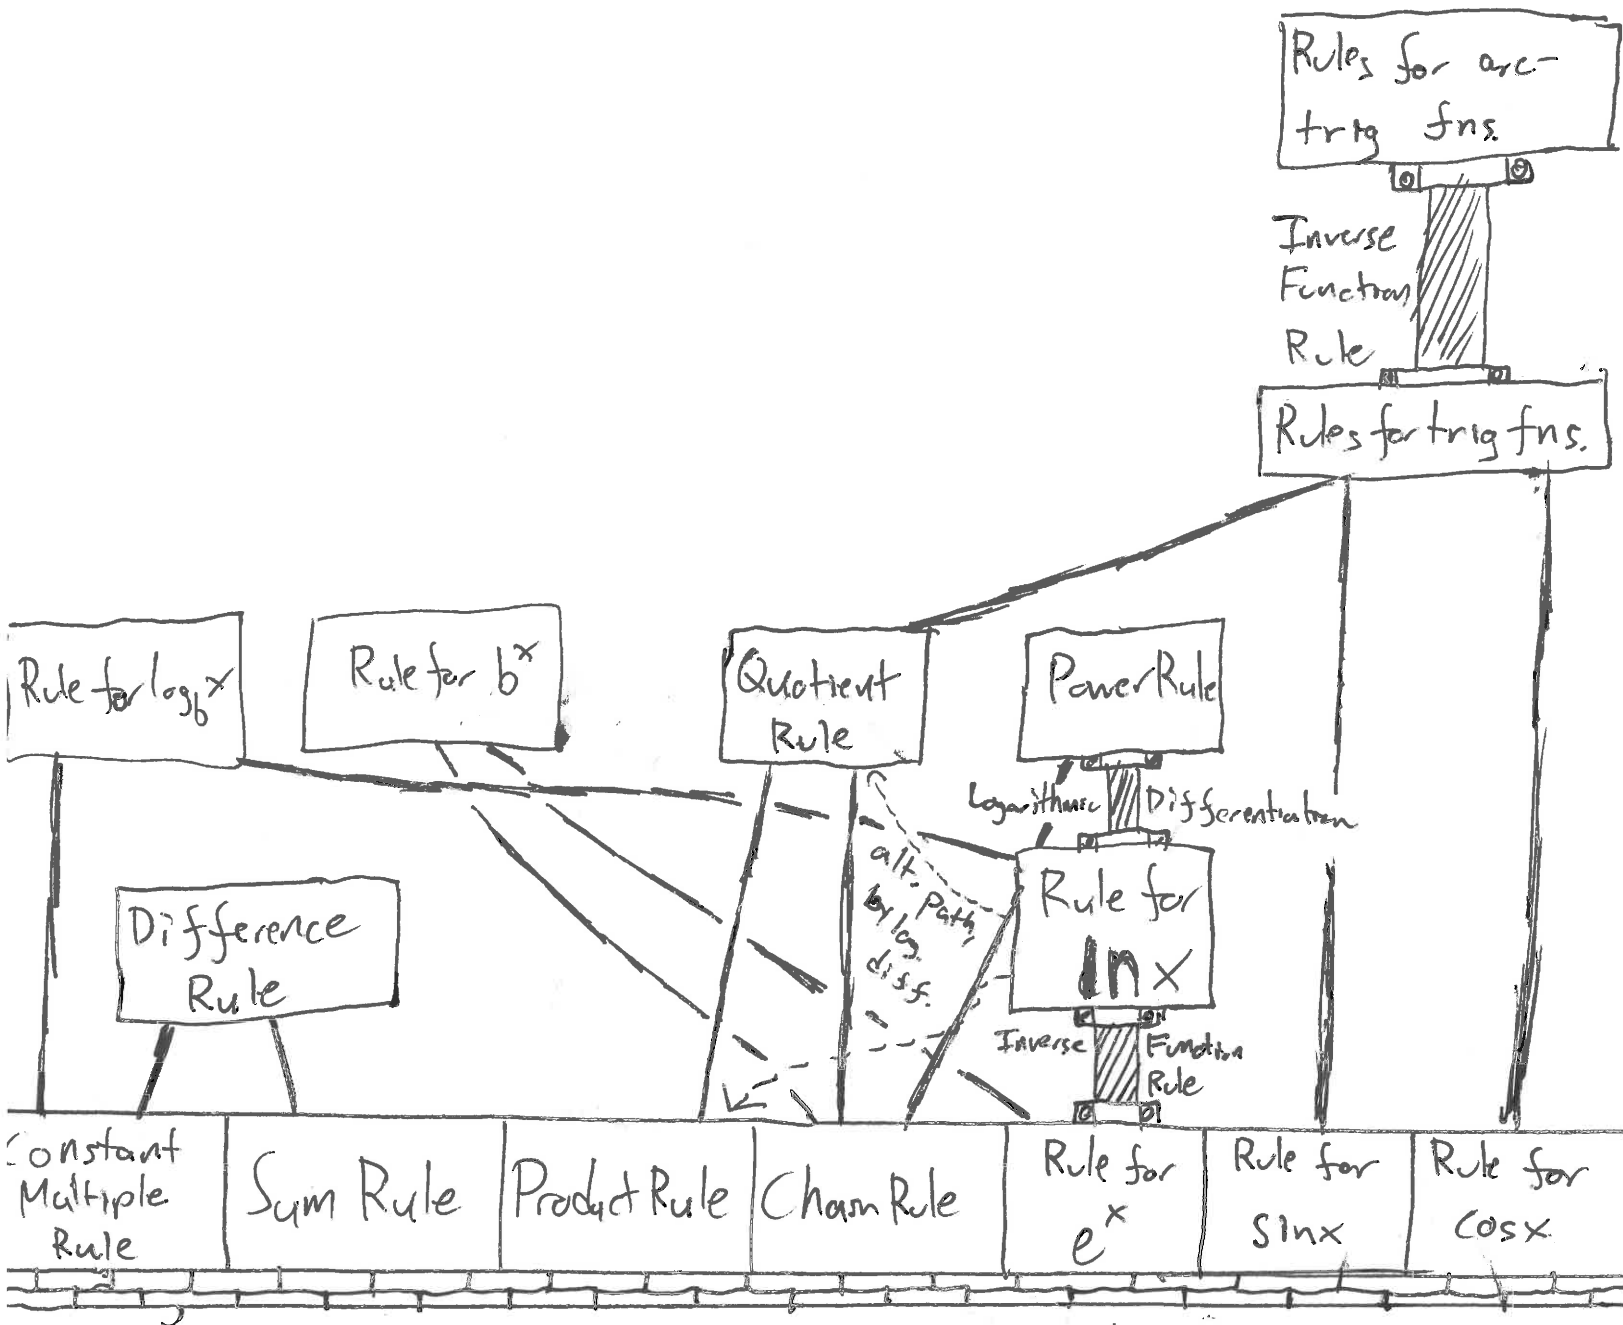 Rules for arc-
trig fns.
Inverse
Function
Rule
Rules for trig fns.
Rule for log_b x
Rule for b^x
Quotient
Rule
Power Rule
Logarithmic Differentiation
alt. path,
by log
diff.
Rule for
ln x
Difference
Rule
Inverse Function
Rule
Constant
Multiple
Rule
Sum Rule
Product Rule
Chain Rule
Rule for
e^x
Rule for
sinx
Rule for
cosx